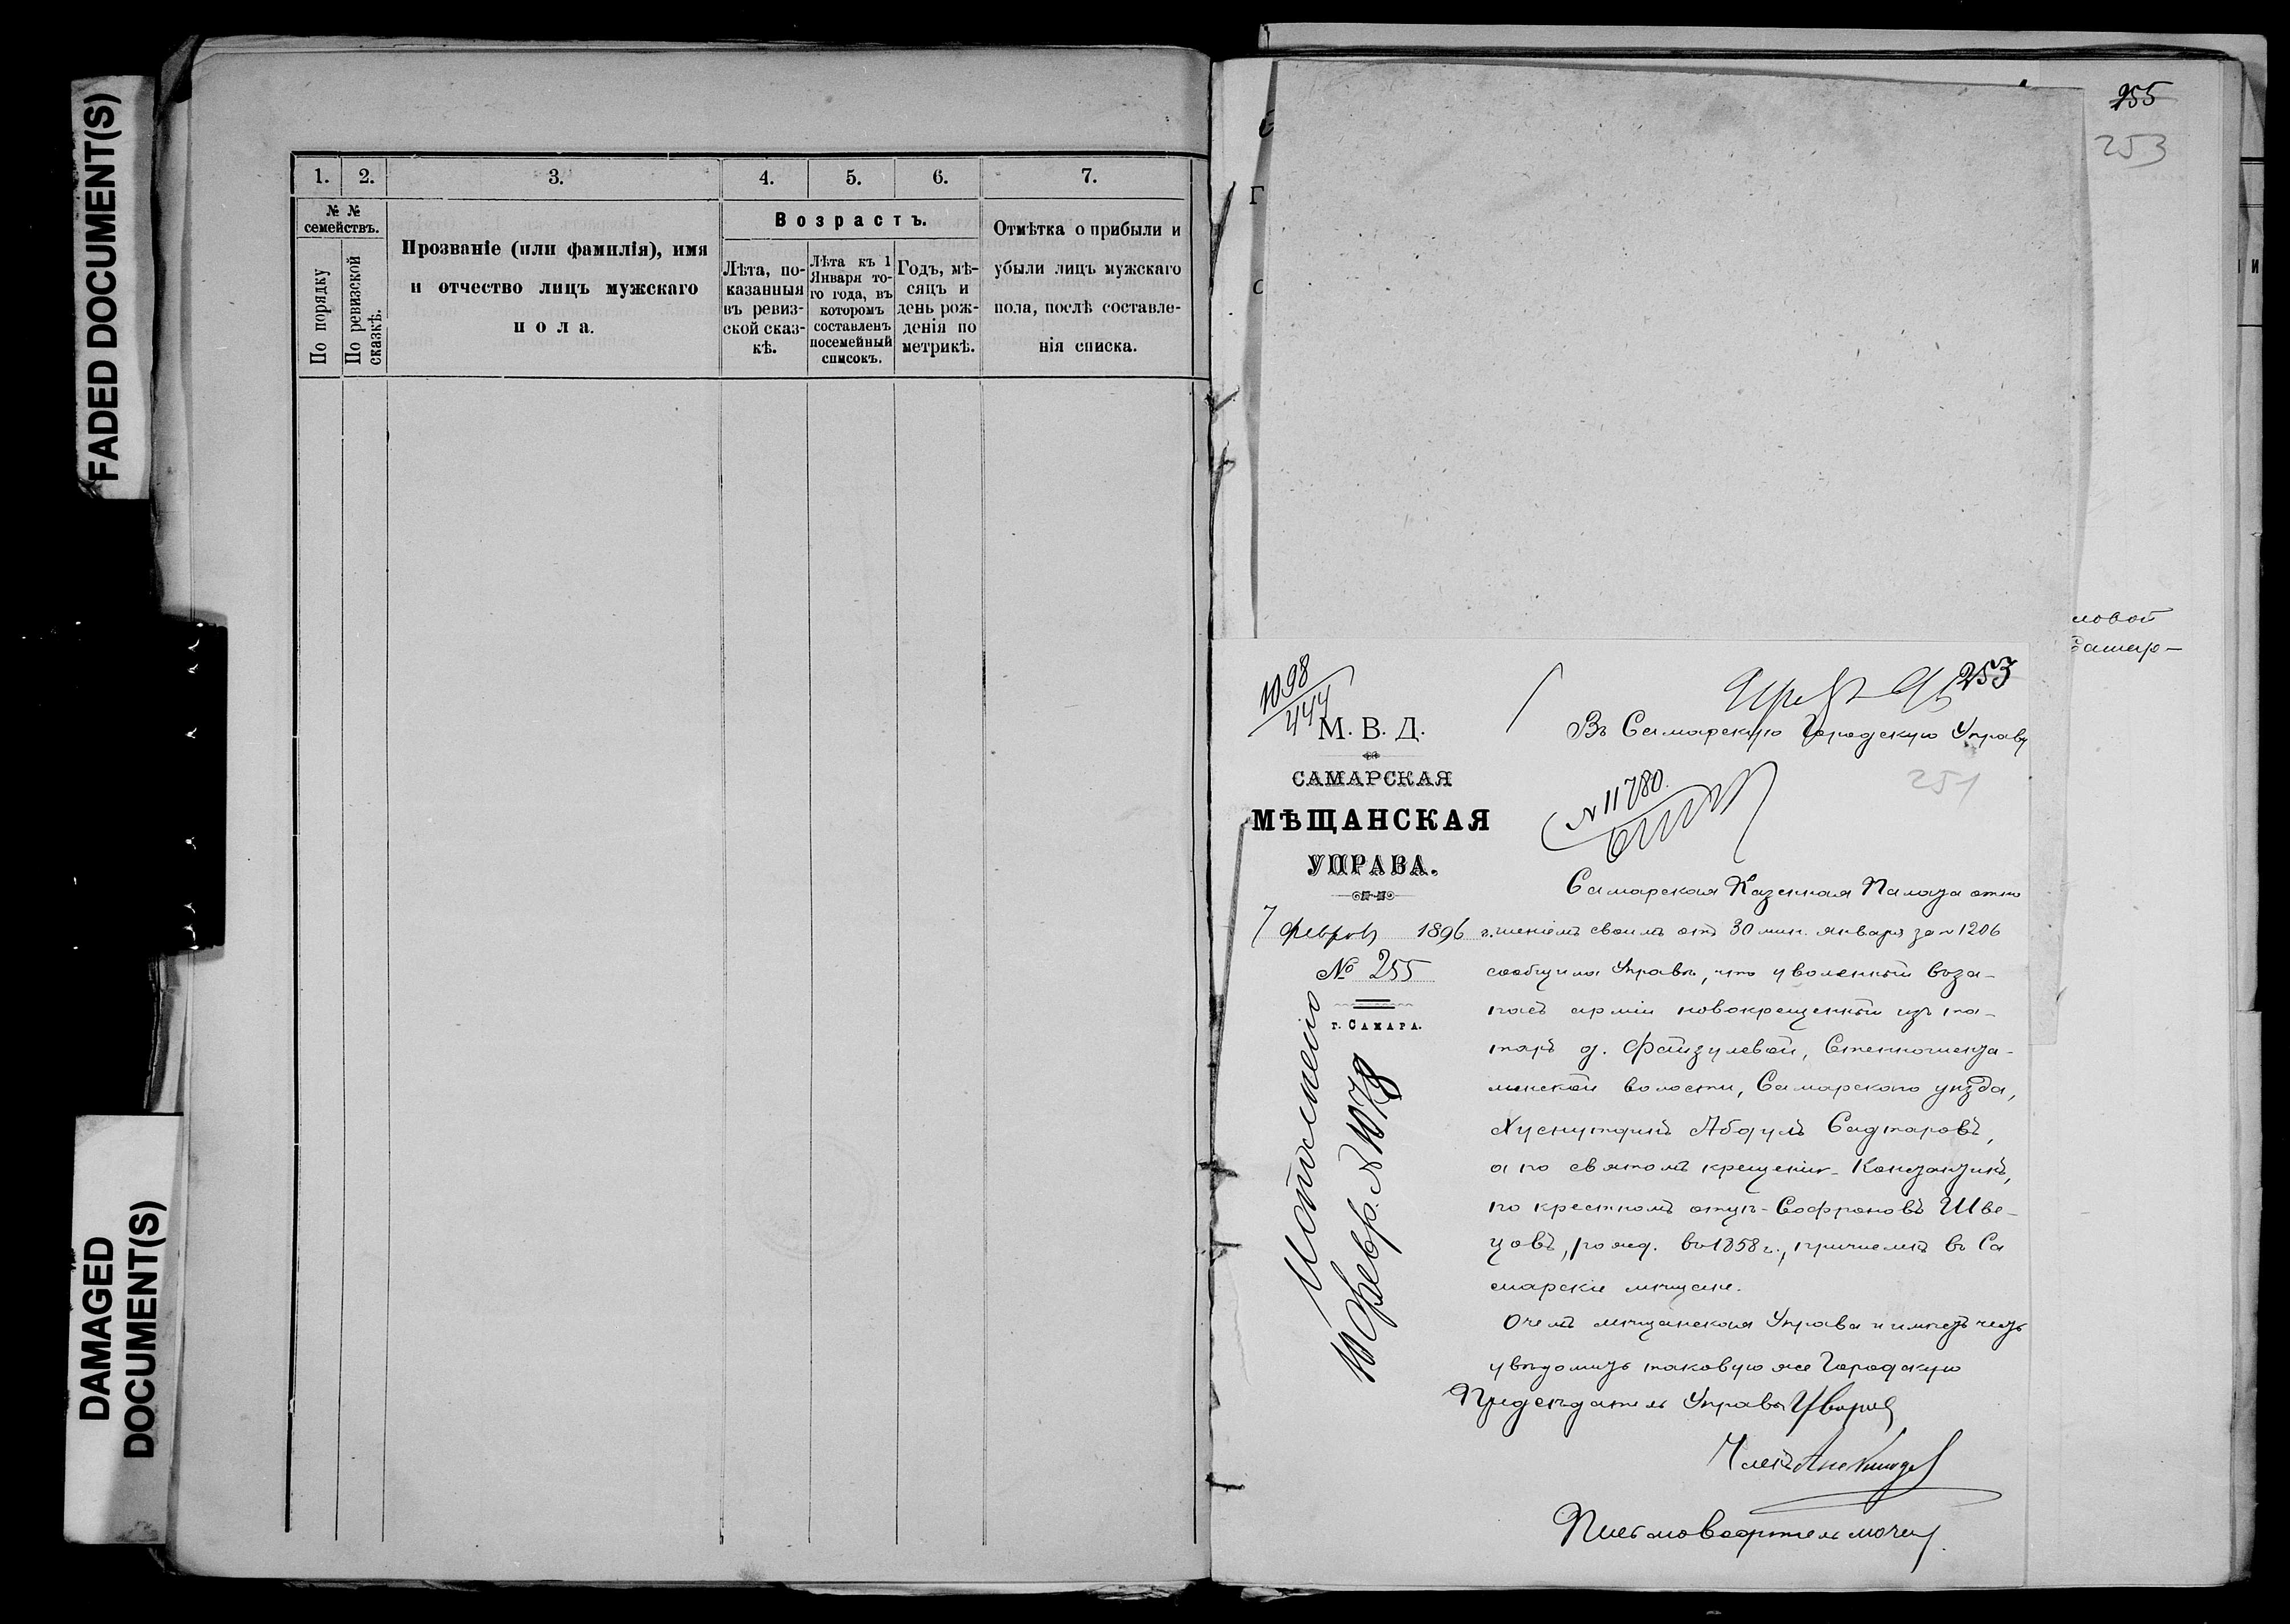 FADED DOCUMENT(S)
DAMAGED
DOCUMENT(S)
1. 2. 3. 4. 5. 6. 7.
№ №
семействъ.
По порядку
По ревизской
сказкѣ.
Прозваніе (или фамилія), имя
и отчество лицъ мужскаго
пола.
Возрастъ.
Лѣта, по-
казанныя
въ ревиз-
ской сказ-
кѣ.
Лѣта къ 1
Января то-
го года, въ
которомъ
составленъ
посемейный
списокъ.
Годъ, мѣ-
сяцъ и
день рож-
денія по
метрикѣ.
Отмѣтка о прибыли и
убыли лицъ мужскаго
пола, послѣ составле-
нія списка.
255
253
ловой
1098
444
253
М. В. Д.
САМАРСКАЯ
МѢЩАНСКАЯ
УПРАВА.
7 февраля 1896 г.
№ 255
г. САМАРА.
Исполнено
10 февр. № 1078
Въ Самарскую Городскую Управу
251
№ 11780.
Самарская Казенная Палата отно
шеніемъ своимъ отъ 30 мин. января за № 1206
сообщила Управѣ, что уволенный въ за-
пасъ арміи новокрещенный изъ та-
таръ д. Файзулевой, Степношента-
линской волости, Самарскаго уѣзда,
Хуснутдинъ Абдулъ Садтаровъ,
а по святомъ крещеніи - Константинъ,
по крестномъ отцѣ - Софроновъ Шве-
цовъ, рожд. въ 1858 г., причисленъ въ Са
марскіе мѣщане.
О чемъ мѣщанская Управа и имѣетъ честь
увѣдомить таковую же Городскую
Предсѣдатель Управы
Членъ
Письмоводитель